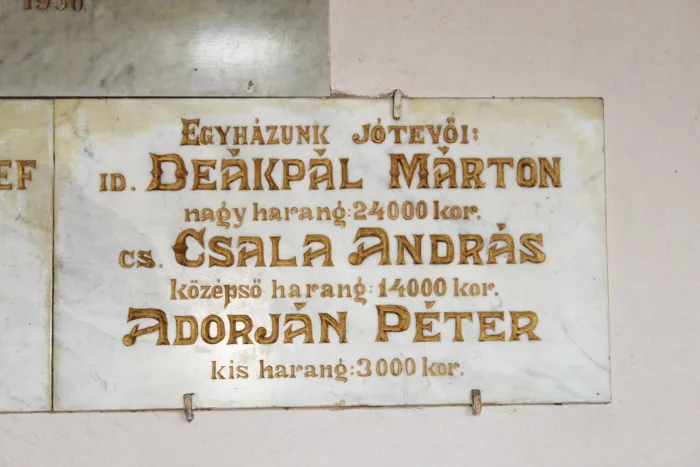 1930
EF
EGYHÁZUNK JÓTEVŐI:
ID. DEÁKPÁL MÁRTON
nagy harang: 24000 kor.
CS. CSALA ANDRÁS
középső harang: 14000 kor.
ADORJÁN PÉTER
kis harang: 3000 kor.